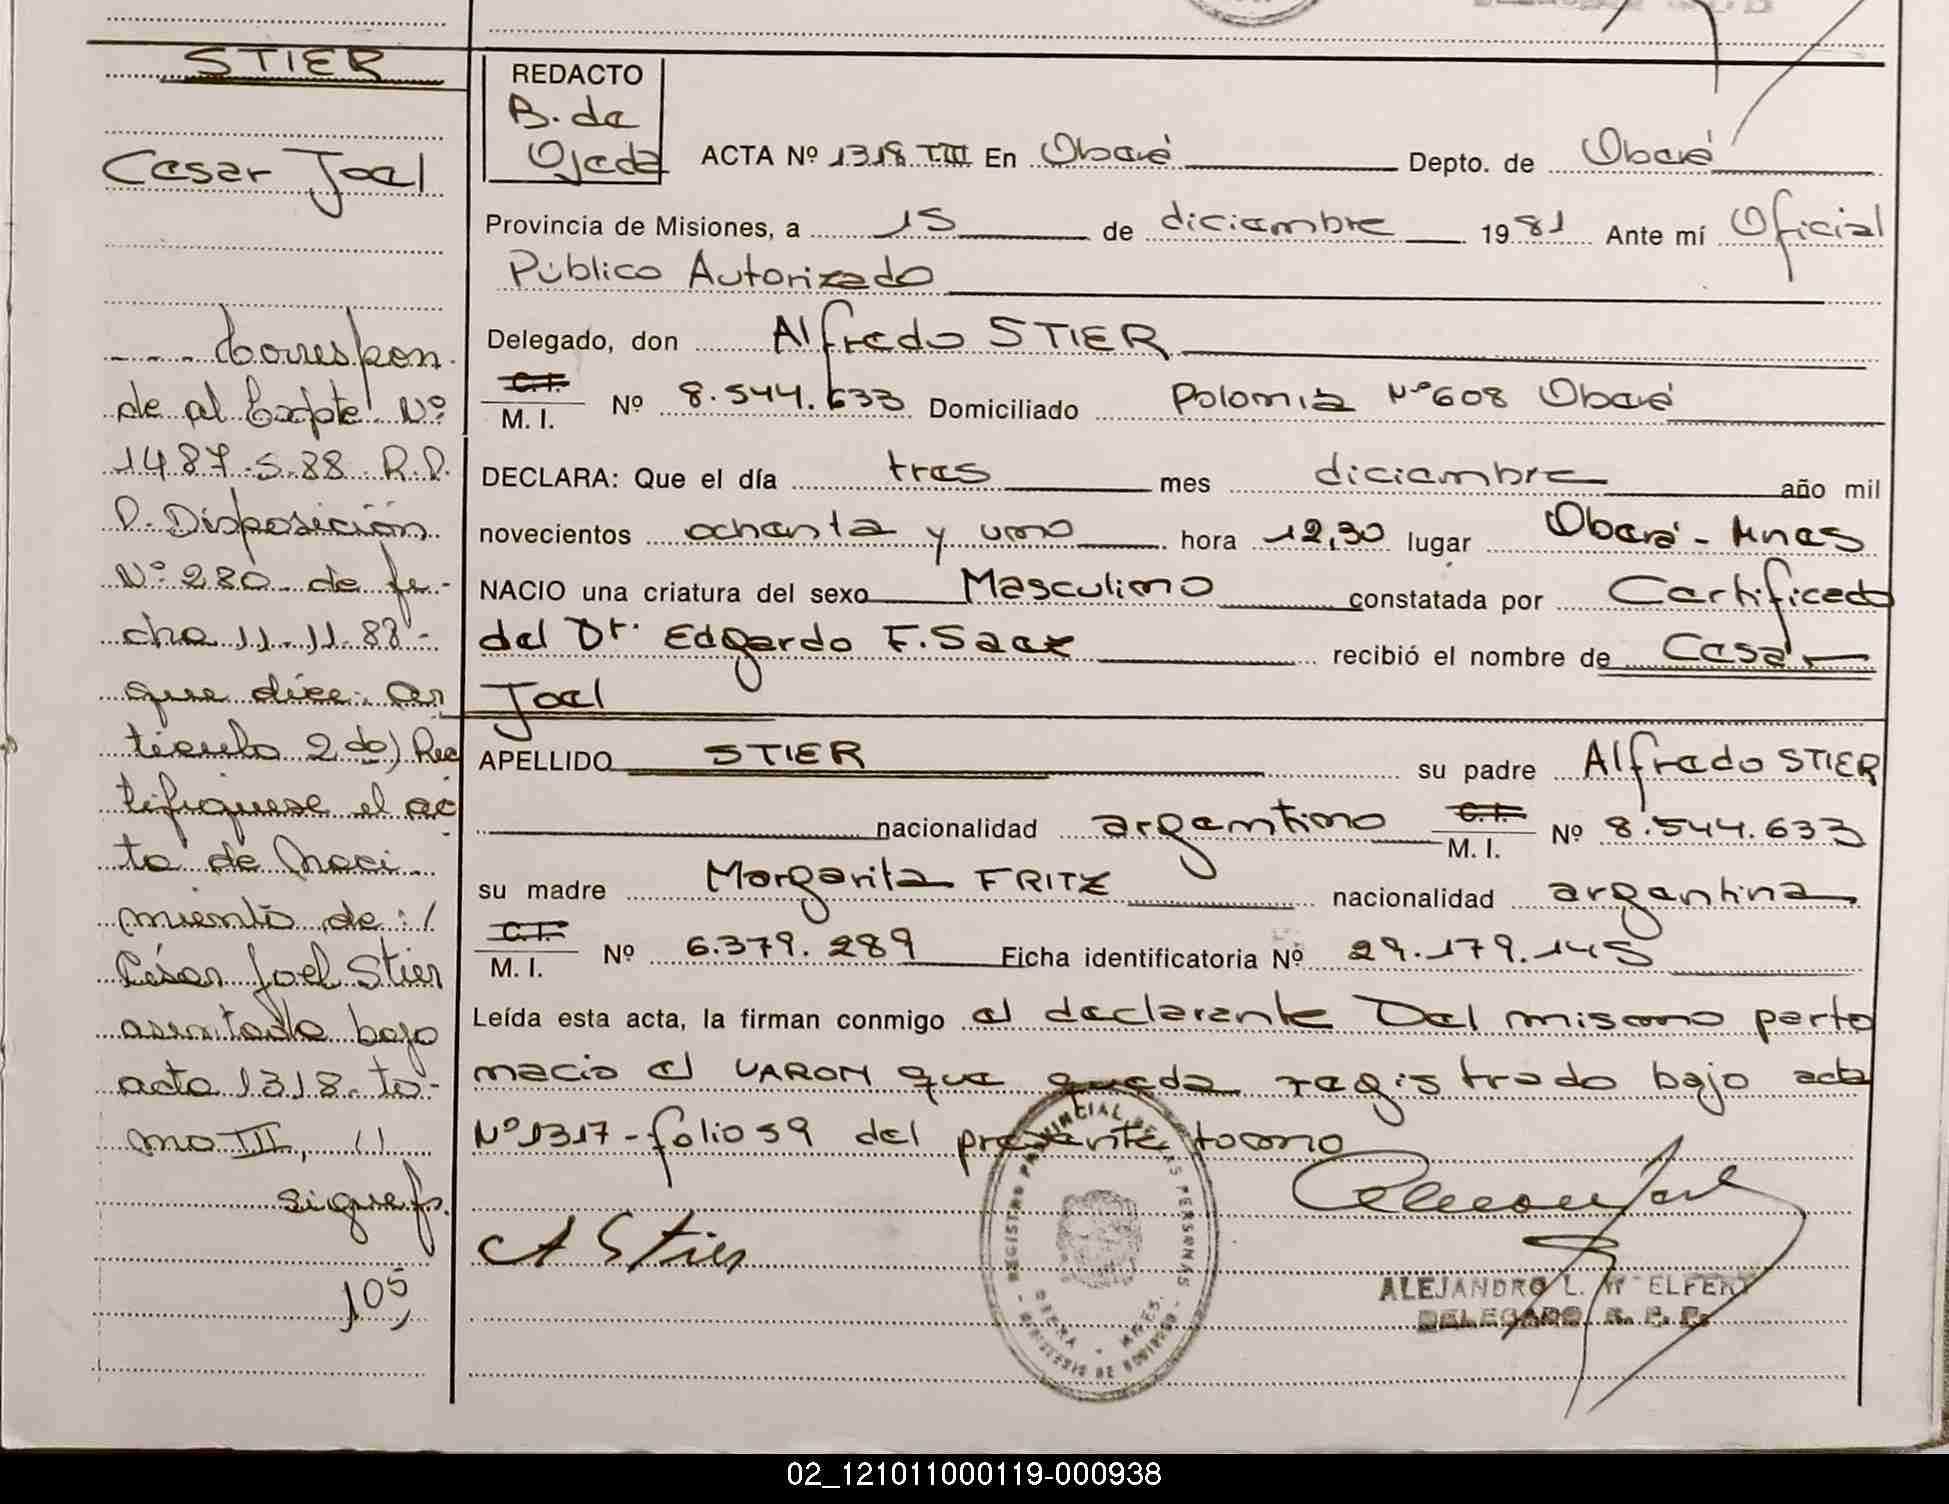 STIER
Cesar Joel
- - - Correspon-
de al Expte Nº
1487-S-88-R.P.
P. Disposición
Nº 280 de fe-
cha 11-11-88-
que dice: ar
tículo 2do) Rec
tifíquese el ac
ta de Naci-
miento de:/
César Joel Stier
asentado bajo
acta 1318-to-
mo III, //
sigue fs.
105
REDACTO
B. de
Ojeda
ACTA Nº 1318 TIII En Oberá Depto. de Oberá
Provincia de Misiones, a 15 de diciembre 1981 Ante mí Oficial
Público Autorizado
Delegado, don Alfredo STIER
C.I.
M. I. Nº 8.544.633 Domiciliado Polonia Nº608 Oberá
DECLARA: Que el día tres mes diciembre año mil
novecientos ochenta y uno hora 12,30 lugar Oberá - Mnes
NACIO una criatura del sexo Masculino constatada por Certificado
del Dr. Edgardo F. Saez recibió el nombre de Cesar
Joel
APELLIDO STIER su padre Alfredo STIER
nacionalidad argentino C.I. M. I. Nº 8.544.633
su madre Margarita FRITZ nacionalidad argentina
C.I.
M. I. Nº 6.379.289 Ficha identificatoria Nº 29.179.145
Leída esta acta, la firman conmigo el declarante Del mismo parto
nacio el VARON que queda registrado bajo acta
Nº1317-folio 59 del presente tomo
A Stier
REGISTRO PROVINCIAL DE LAS PERSONAS
OBERA - MNES.
ALEJANDRO L. WELFERT
DELEGADO R. P. P.
02_121011000119-000938